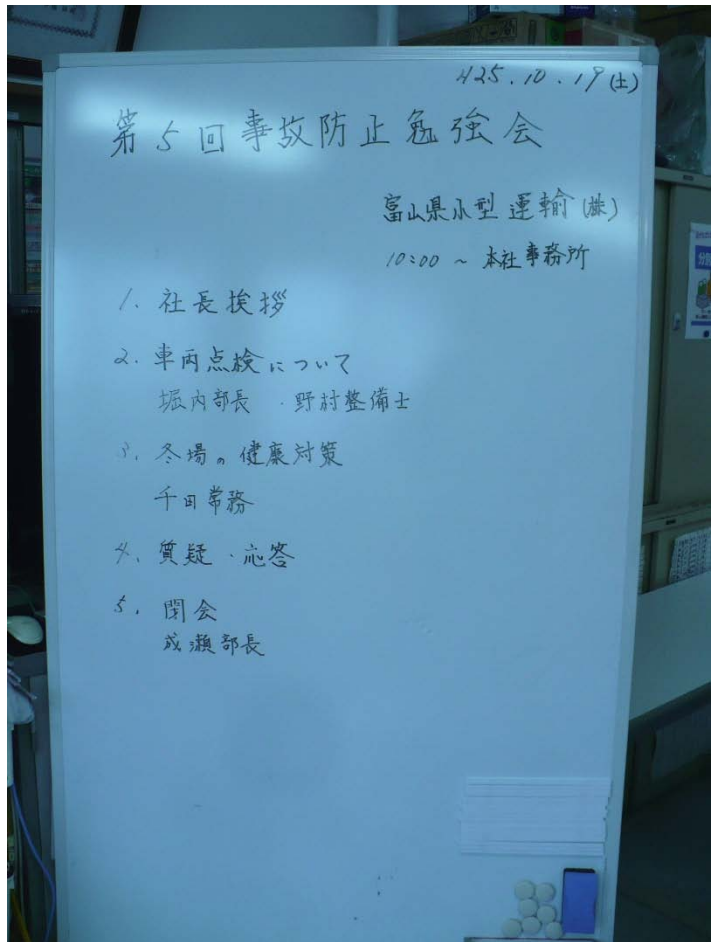 H25.10.19(土)
第5回事故防止勉強会
富山県小型運輸(株)
10:00～本社事務所
1. 社長挨拶
2. 車両点検について
堀内部長・野村整備士
3. 冬場の健康対策
千田常務
4. 質疑・応答
5. 閉会
成瀬部長